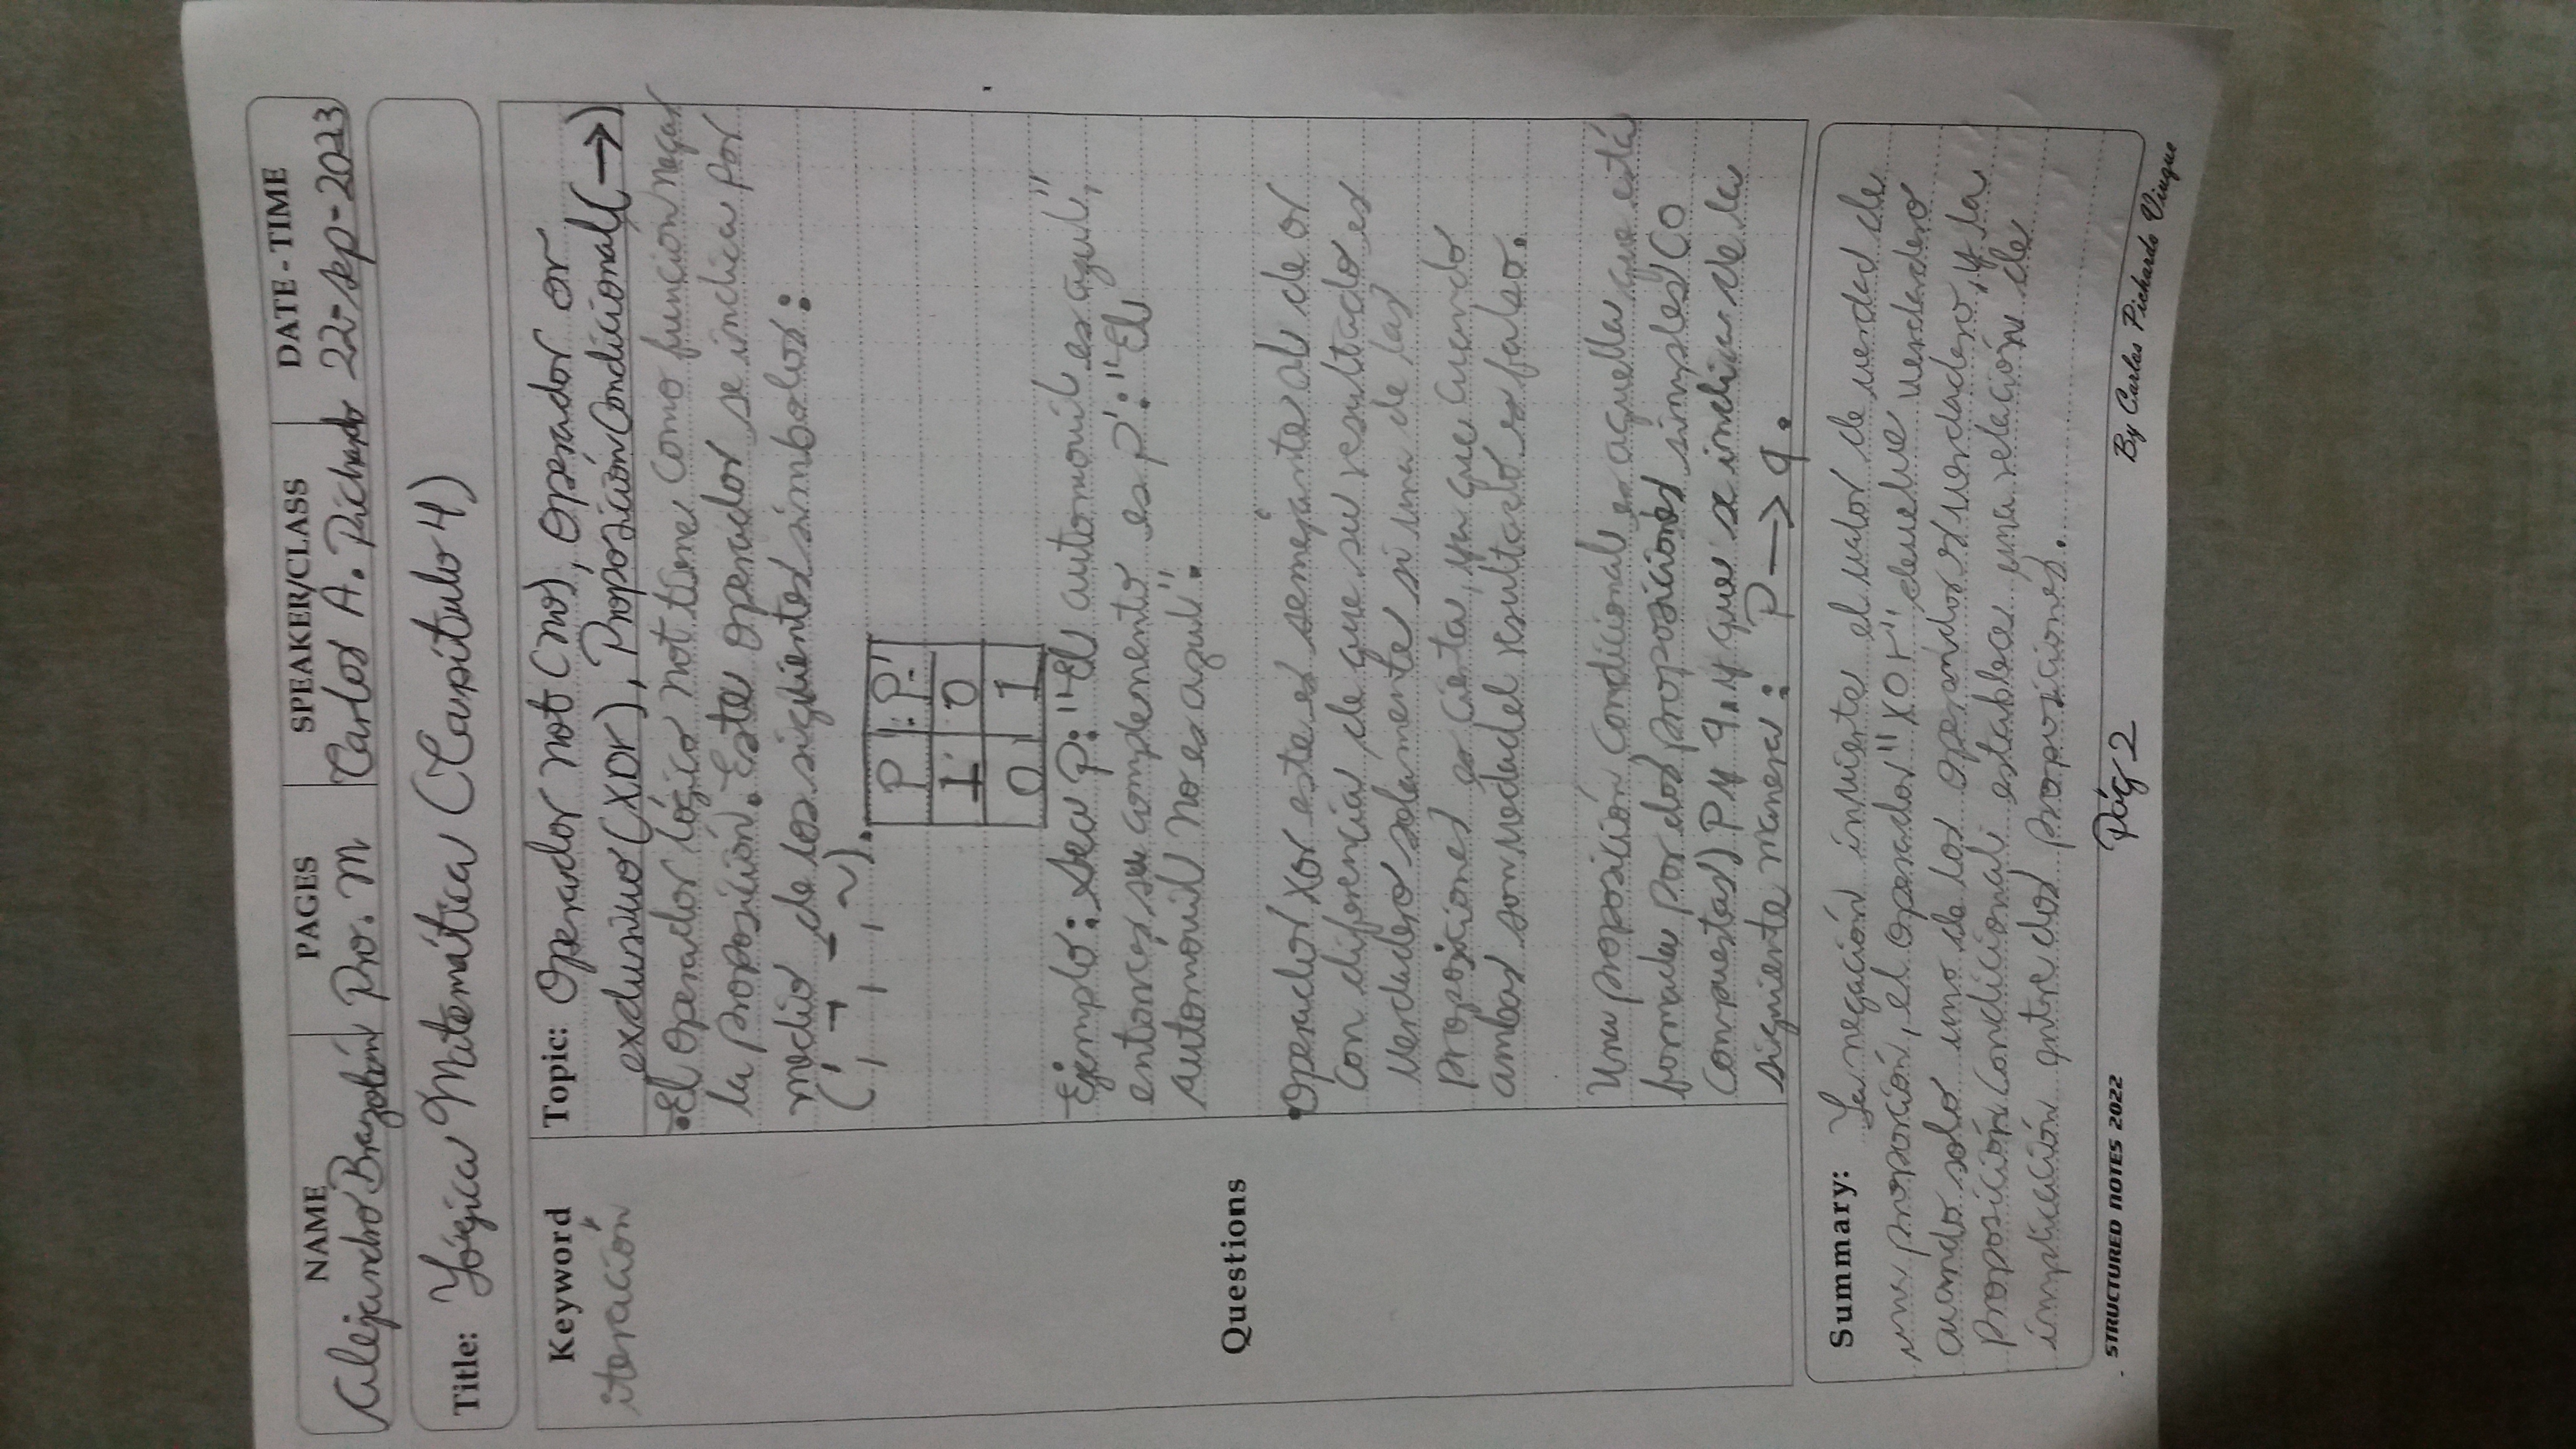 NAME PAGES SPEAKER/CLASS DATE - TIME
Alejandro Brazobán Pro. M Carlos A. Pichardo 22-sep-2023
Title: Lógica Matemática (Capítulo 4)
Keyword
iteración
Topic: Operador not (no), Operador or
exclusivo (XOr), Proposición Condicional (→)
•El operador lógico not tiene como función negar
la proposición. Este operador se indica por
medio de los siguientes simbolos:
(', ¬, –, ~).
P P'
1 0
0 1
Ejemplo: Sea p: "El automóvil es azul",
entonces su complemento es p': "El
automóvil no es azul".
Questions
•Operador xor este es semejante al de or
con diferencia de que su resultado es
verdadero solamente si una de las
proposiciones es cierta, ya que cuando
ambas son vedad el resultado es falso.
Una proposición condicional es aquella que está
formada por dos proposiciones simples (o
compuestas) P y q, y que se indica de la
siguiente manera: P → q.
Summary: La negación invierte el valor de verdad de
una proporción, el operador "XOr" devuelve verdardero
cuando solo uno de los operandos es verdadero, y la
proposición condicional establece una relación de
implicación entre dos proposiciones.
STRUCTURED NOTES 2022 Pág 2 By Carlos Pichardo Viuque